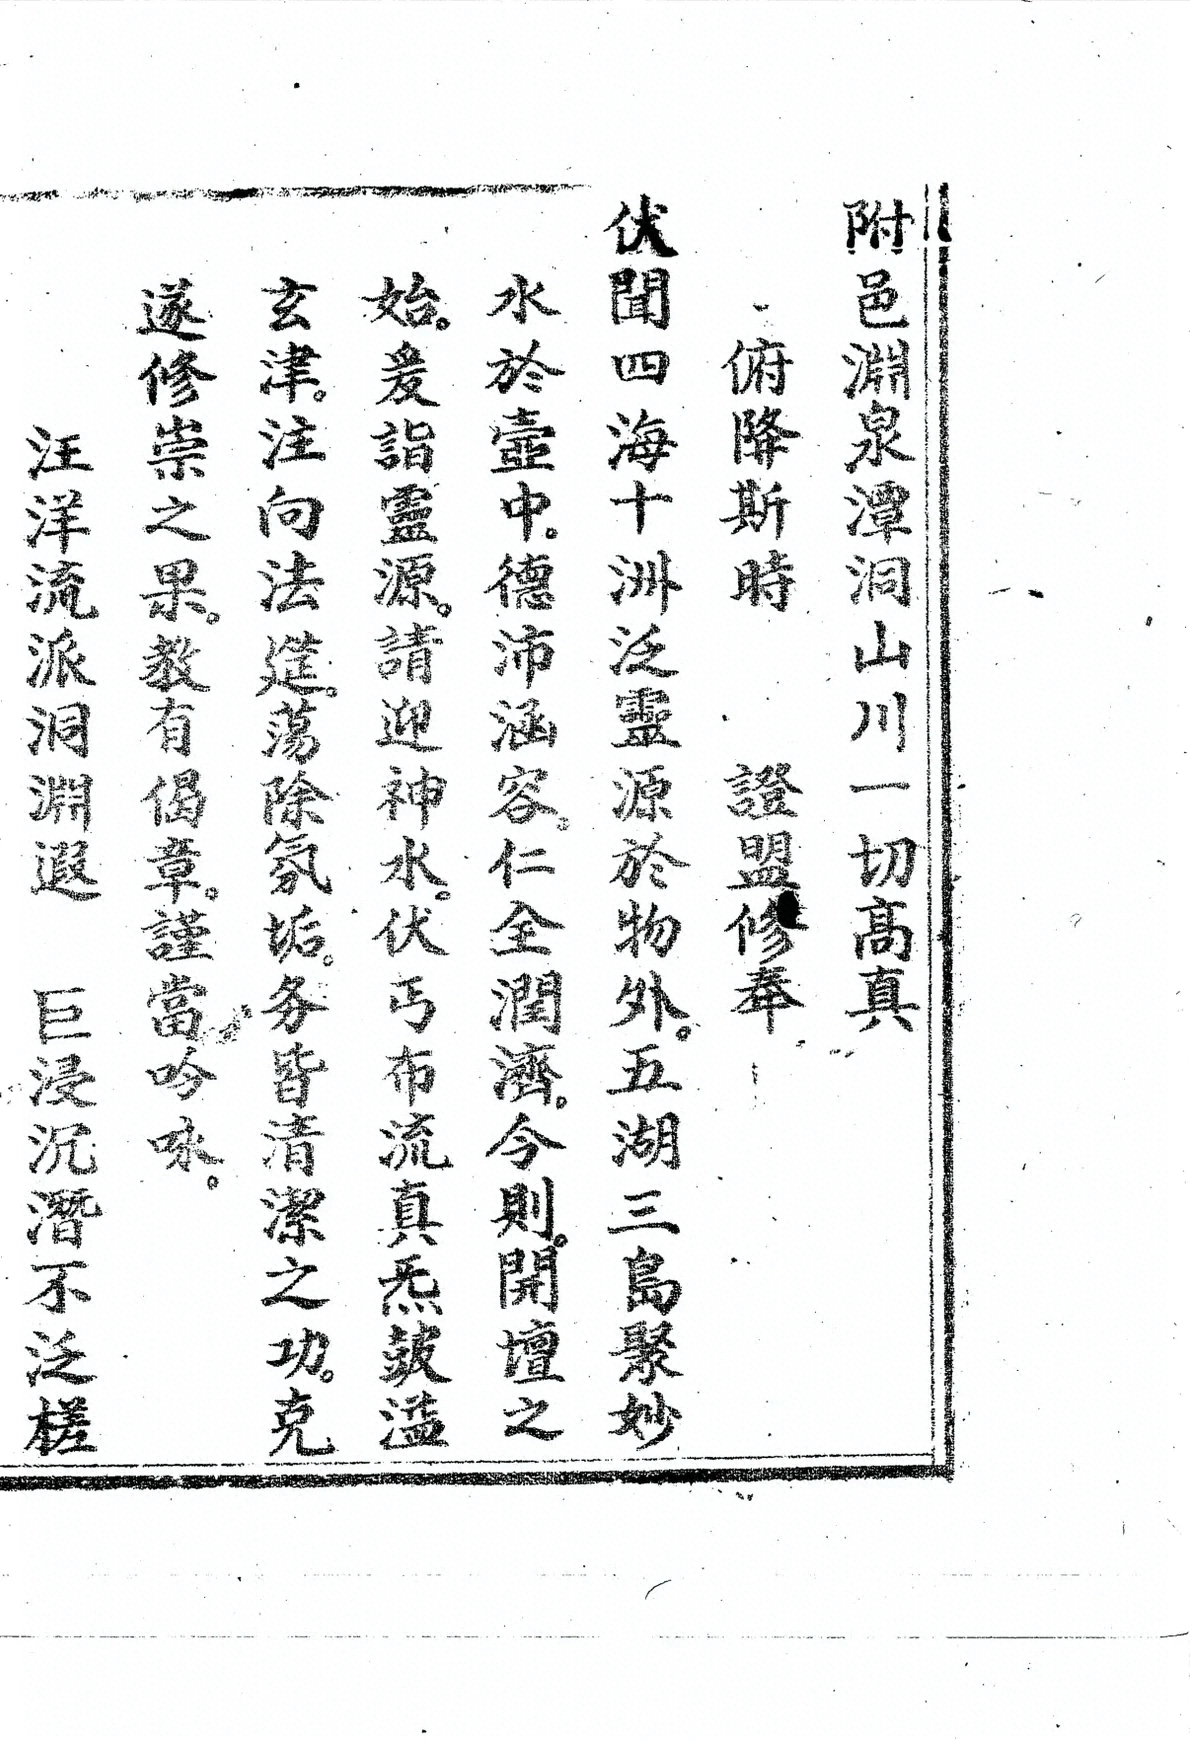 附邑淵泉潭洞山川一切高真
俯降斯時　證盟修奉
伏聞四海十洲泛靈源於物外。五湖三島聚妙
水於壺中。德沛涵容。仁全潤濟。今則。開壇之
始。爰詣靈源。請迎神水。伏丐布流真炁鼓溢
玄津。注向法筵。蕩除氛垢。务皆清潔之功。克
遂修崇之果。教有偈章。謹當吟咏。
汪洋流派洞淵遐　巨浸沉潛不泛槎